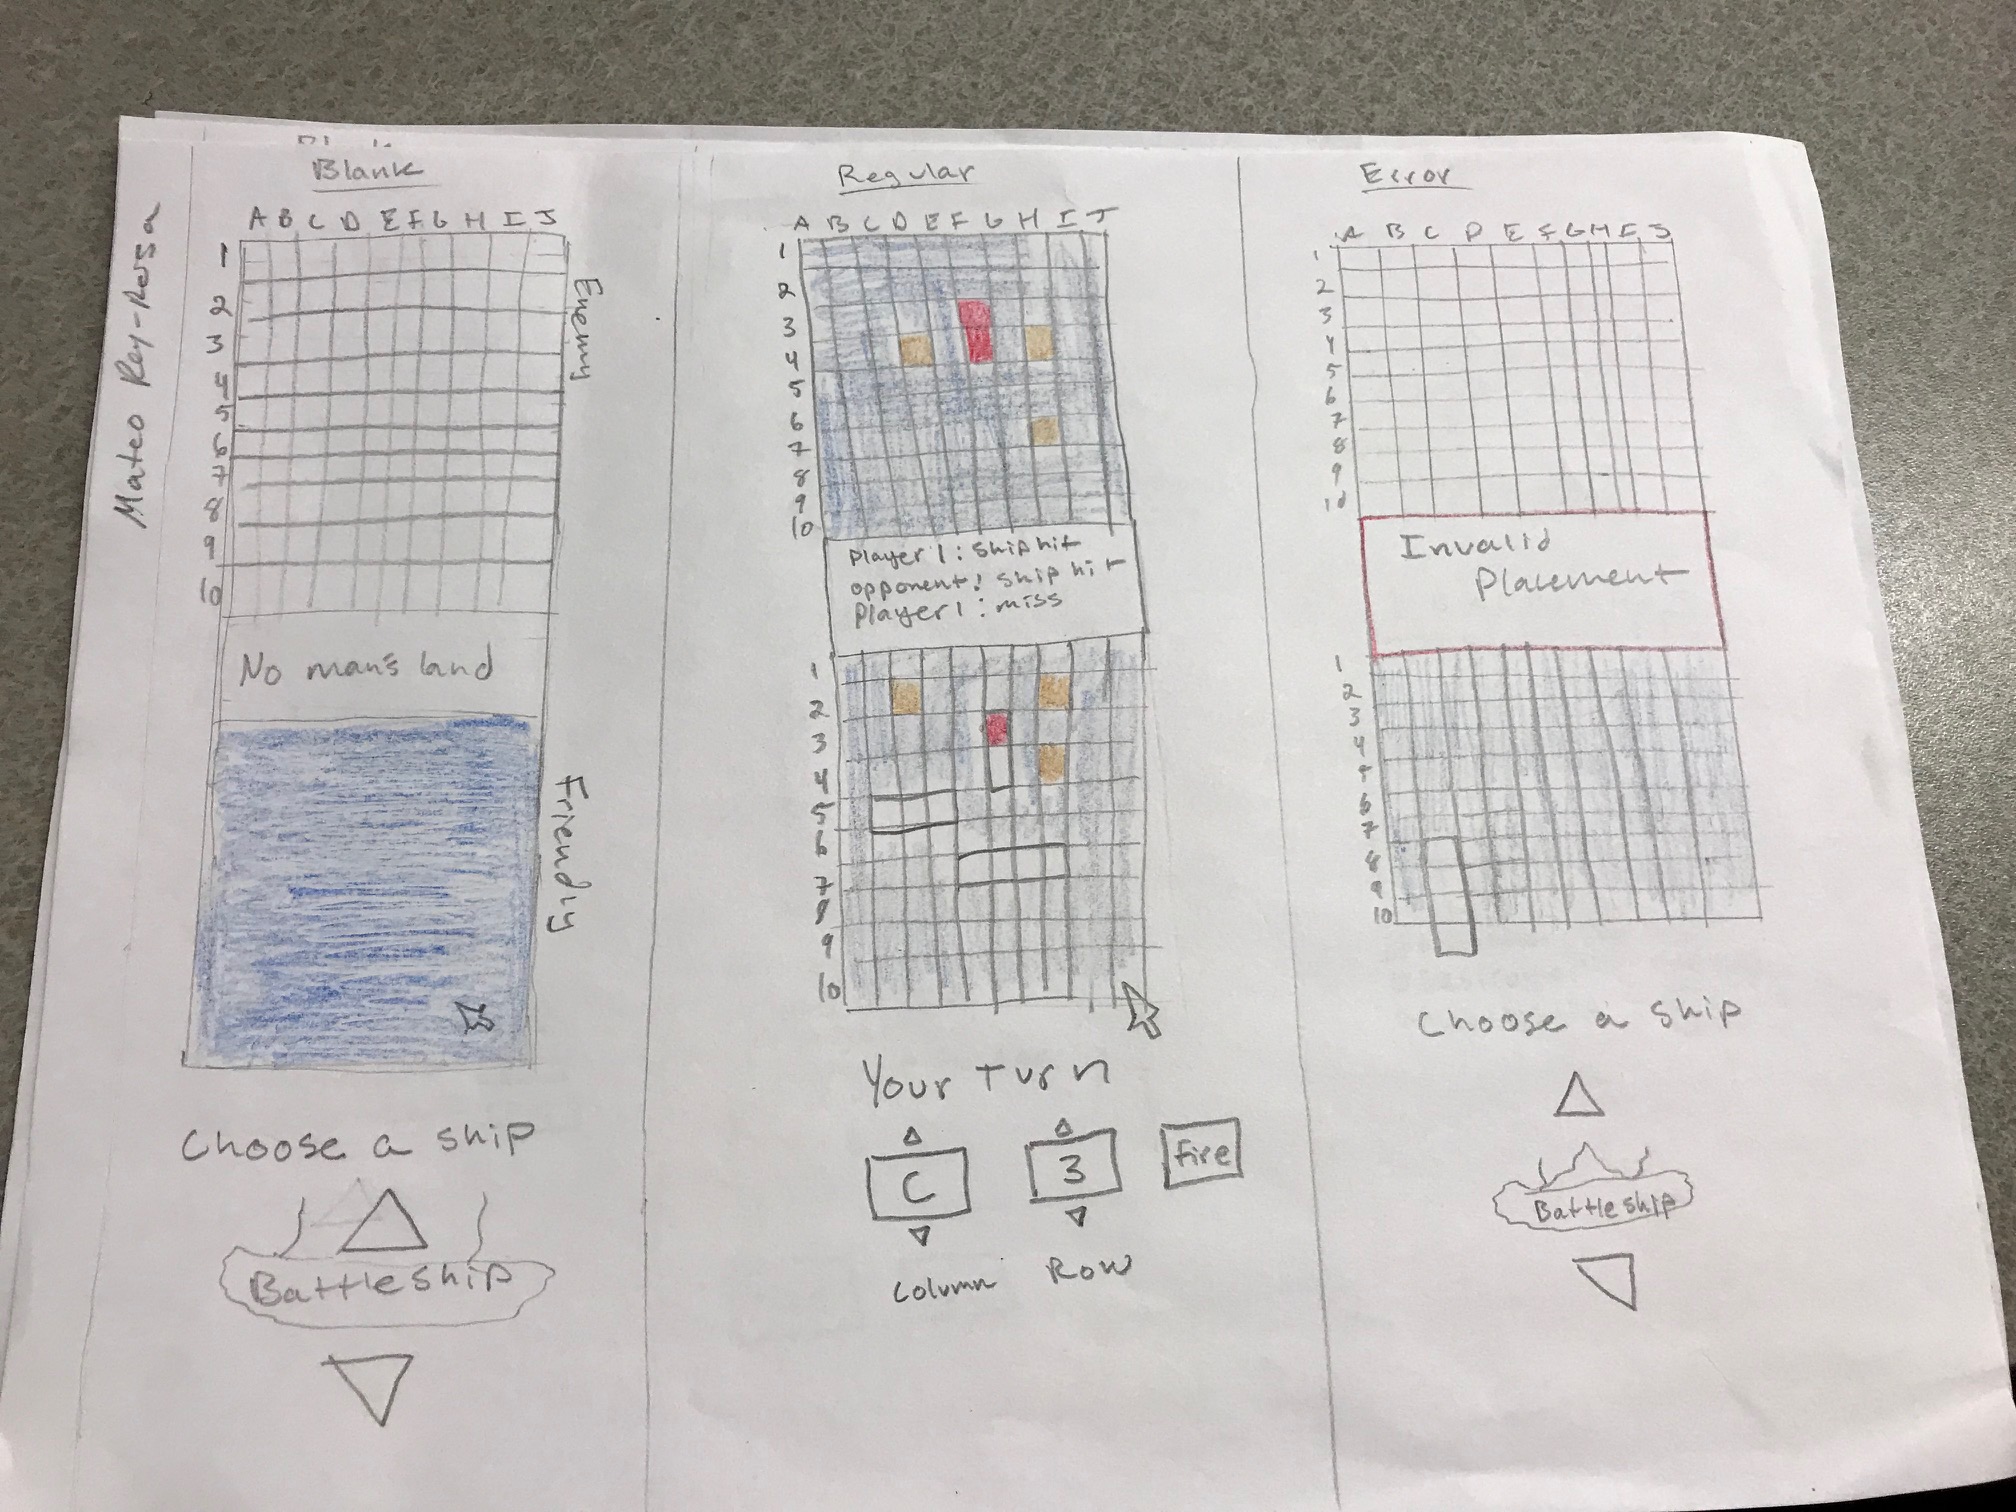 Mateo Rey-Rosa
Blank
A B C D E F G H I J
1
2
3
4
5
6
7
8
9
10
Enemy
No mans land
Friendly
Choose a ship
Battleship
Regular
A B C D E F G H I J
1
2
3
4
5
6
7
8
9
10
player 1: ship hit
opponent: ship hit
player 1: miss
1
2
3
4
5
6
7
8
9
10
Your Turn
C 3 Fire
column Row
Error
A B C D E F G H I J
1
2
3
4
5
6
7
8
9
10
Invalid
Placement
1
2
3
4
5
6
7
8
9
10
Choose a ship
Battleship